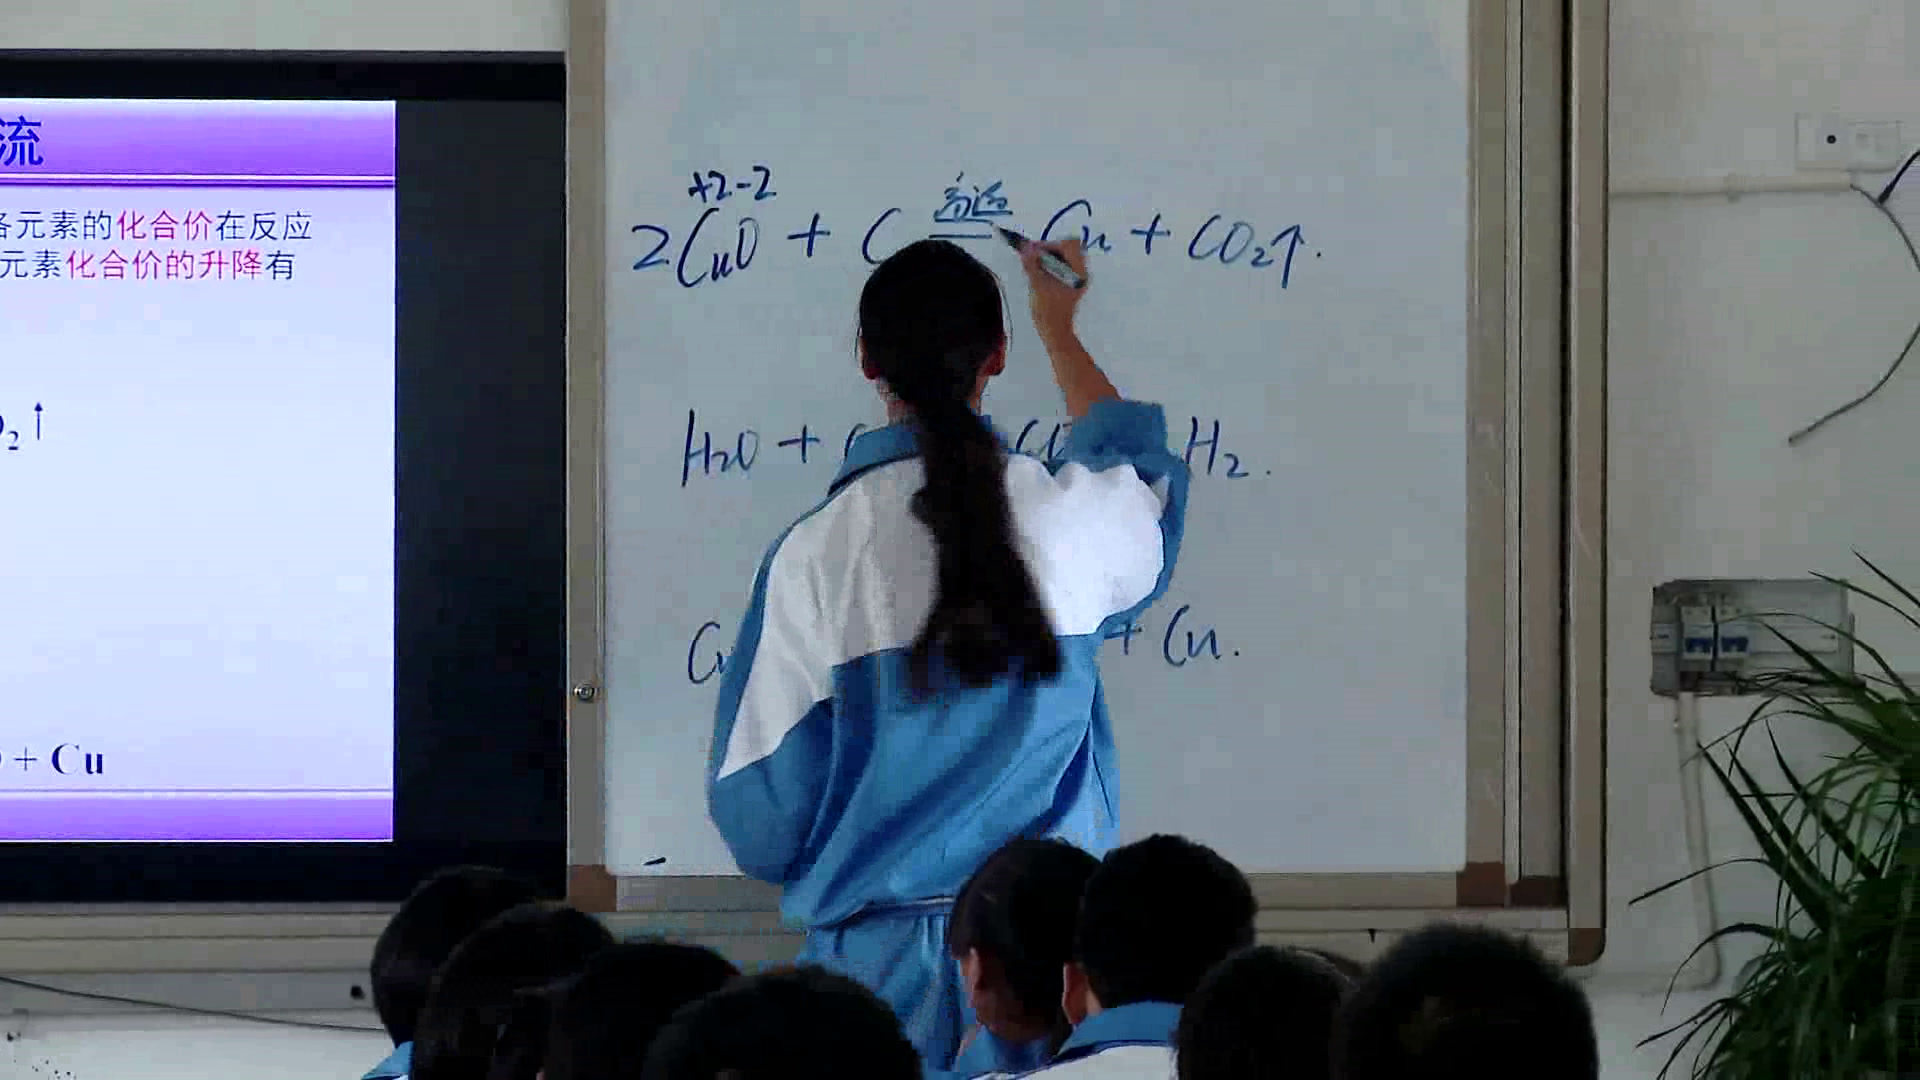 流
各元素的化合价在反应
元素化合价的升降有
O₂↑
+ Cu
+2-2
高温
2CuO + C Cu + CO₂↑.
H₂O + H₂.
Cu + Cu.